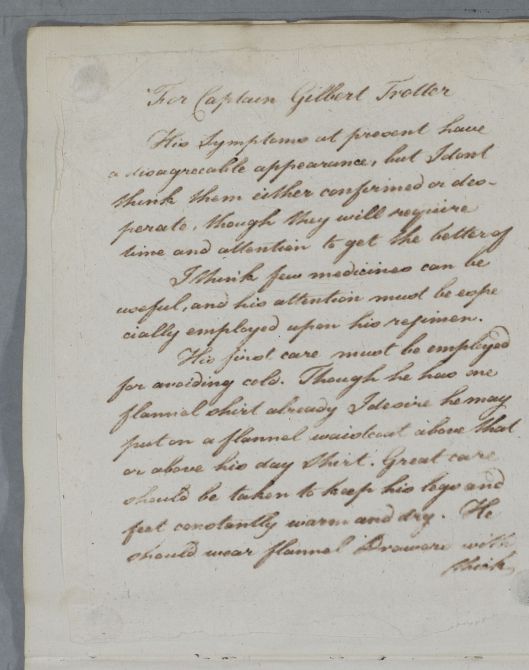 For Captain Gilbert Trotter
His Symptoms at present have
a disagreeable appearance, but I dont
think them either confirmed or des-
perate, though they will require
time and attention to get the better of
I think few medicines can be
useful, and his attention must be espe
cially employed upon his regimen.
His first care must be employed
for avoiding cold. Though he has one
flannel shirt already I desire he may
put on a flannel waistcoat above that
or above his day Shirt. Great care
should be taken to keep his legs and
feet constantly warm and dry. He
should wear flannel Drawers with
thick